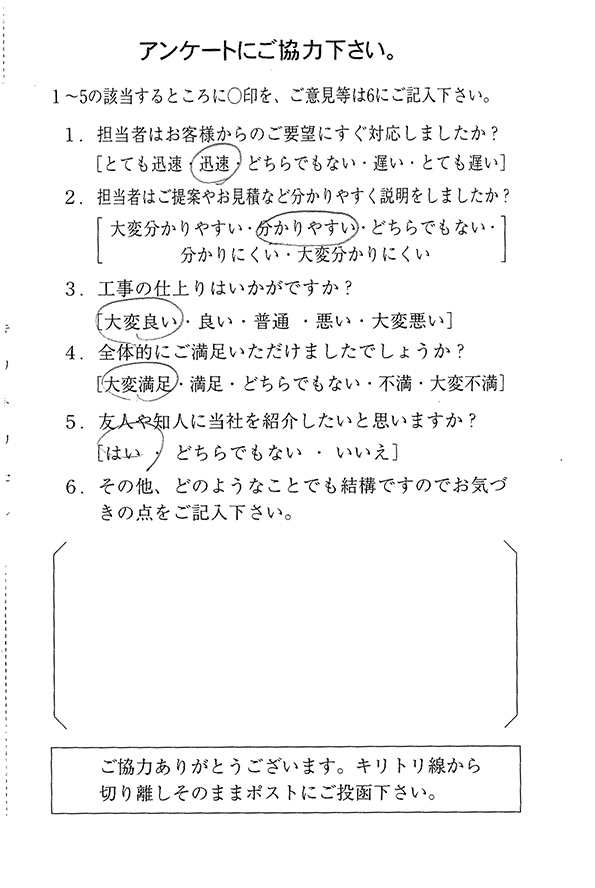 アンケートにご協力下さい。
1～5の該当するところに○印を、ご意見等は6にご記入下さい。
1．担当者はお客様からのご要望にすぐ対応しましたか？
[とても迅速・迅速・どちらでもない・遅い・とても遅い]
2．担当者はご提案やお見積など分かりやすく説明をしましたか？
[大変分かりやすい・分かりやすい・どちらでもない・
分かりにくい・大変分かりにくい]
3．工事の仕上りはいかがですか？
[大変良い・良い・普通・悪い・大変悪い]
4．全体的にご満足いただけましたでしょうか？
[大変満足・満足・どちらでもない・不満・大変不満]
5．友人や知人に当社を紹介したいと思いますか？
[はい・どちらでもない・いいえ]
6．その他、どのようなことでも結構ですのでお気づ
きの点をご記入下さい。
ご協力ありがとうございます。キリトリ線から
切り離しそのままポストにご投函下さい。